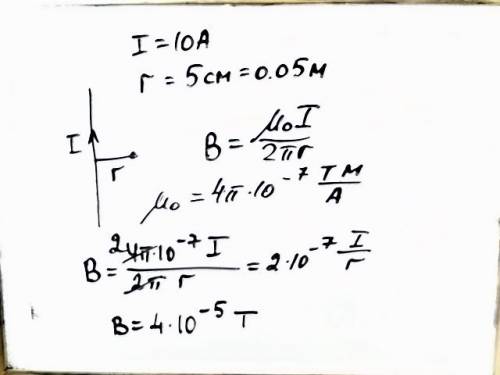 I = 10A
r = 5 см = 0.05 м
I
r
B = μ₀I / 2πr
μ₀ = 4π·10⁻⁷ Тм / А
B = 2 4π·10⁻⁷ I / 2π r = 2·10⁻⁷ I / r
B = 4·10⁻⁵ T